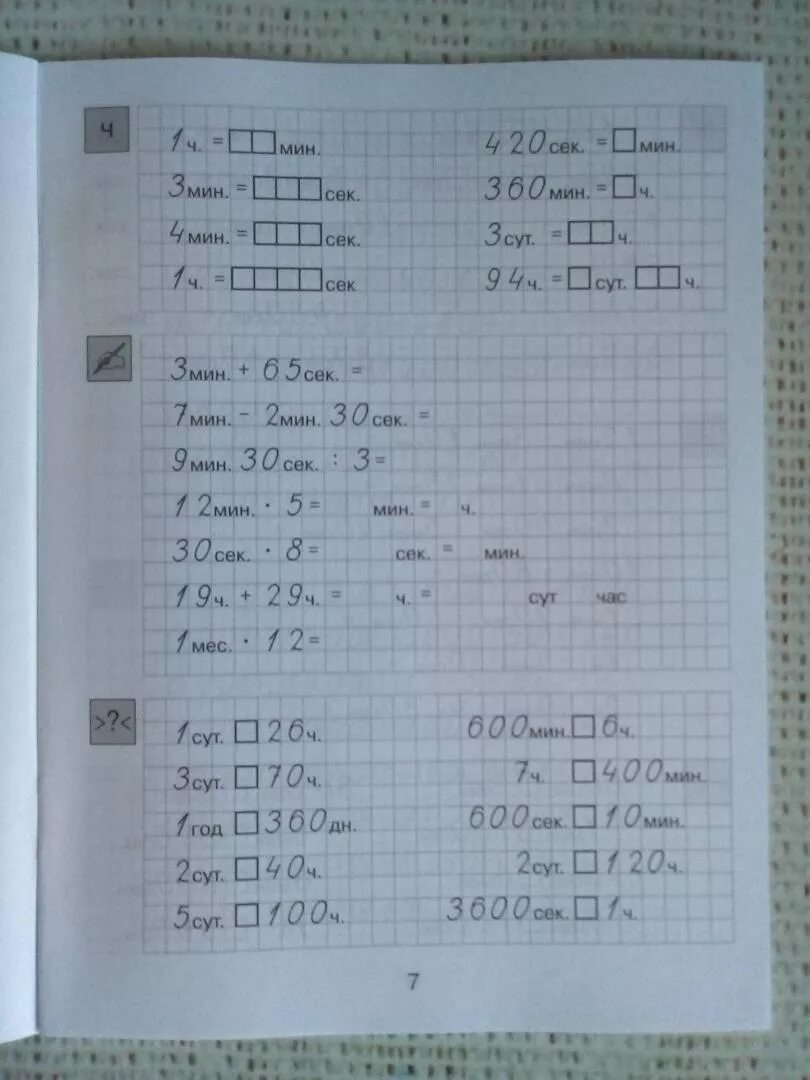 ч
1ч. = мин. 420сек. = мин.
3мин. = сек. 360мин. = ч.
4мин. = сек. 3сут. = ч.
1ч. = сек 94ч. = сут. ч.
3мин. + 65сек. =
7мин. - 2мин. 30сек. =
9мин. 30сек. : 3=
12мин. · 5= мин. = ч.
30сек. · 8= сек. = мин.
19ч. + 29ч. = ч. = сут час
1мес. · 12=
>?<
1сут. 26ч. 600мин. 6ч.
3сут. 70ч. 7ч. 400мин.
1год 360дн. 600сек. 10мин.
2сут. 40ч. 2сут. 120ч.
5сут. 100ч. 3600сек. 1ч.
7